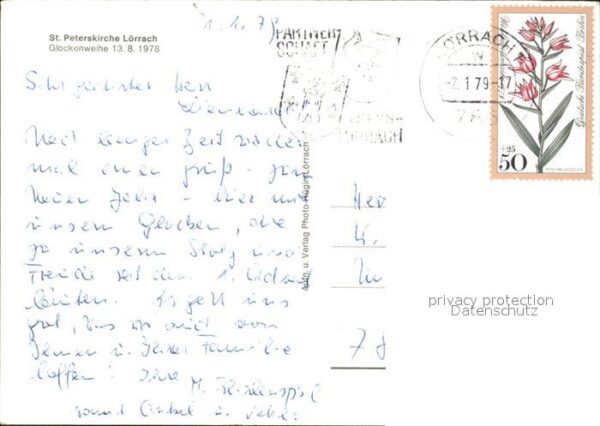 1.1.79
St. Peterskirche Lörrach
Glockenweihe 13. 8. 1978
PARTNER-
SCHAFT
SENS-
LÖRRACH
LÖRRACH
-2.1.79-17
785
Deutsche Bundespost Berlin
+25
50
Sehr geehrter Herr
Nach langer Zeit wieder
mal einen Gruß - zum
Neuen Jahr - hier mit
unseren Glocken, die
ja unseren Stolz und
Freude seit dem 1. Advent
läuten. Es geht uns
gut, was wir auch von
Ihnen u. Ihrer Familie
hoffen! Ihre
M.
samt Onkel u.
Aufn. u. Verlag Photo-Hügin Lörrach
Her
W.
In
78
privacy protection
Datenschutz